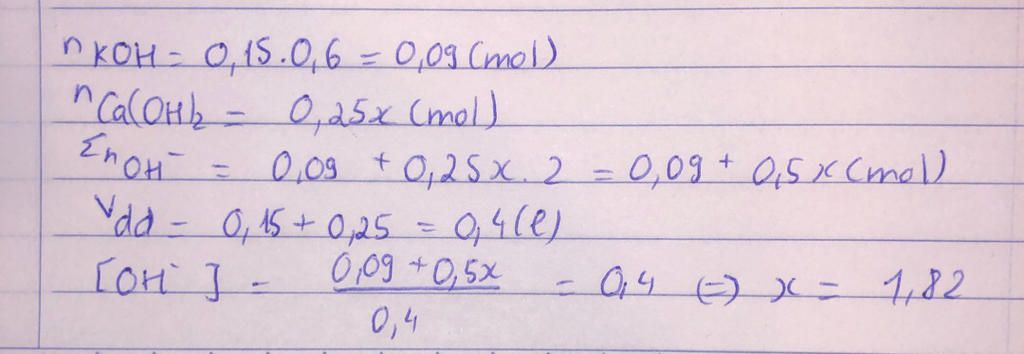 nKOH = 0,15.0,6 = 0,09 (mol)
nCa(OH)2 = 0,25x (mol)
ΣnOH⁻ = 0,09 + 0,25x.2 = 0,09 + 0,5x (mol)
Vdd = 0,15 + 0,25 = 0,4(l)
[OH⁻] = (0,09 + 0,5x)/0,4 = 0,4 (=) x = 1,82